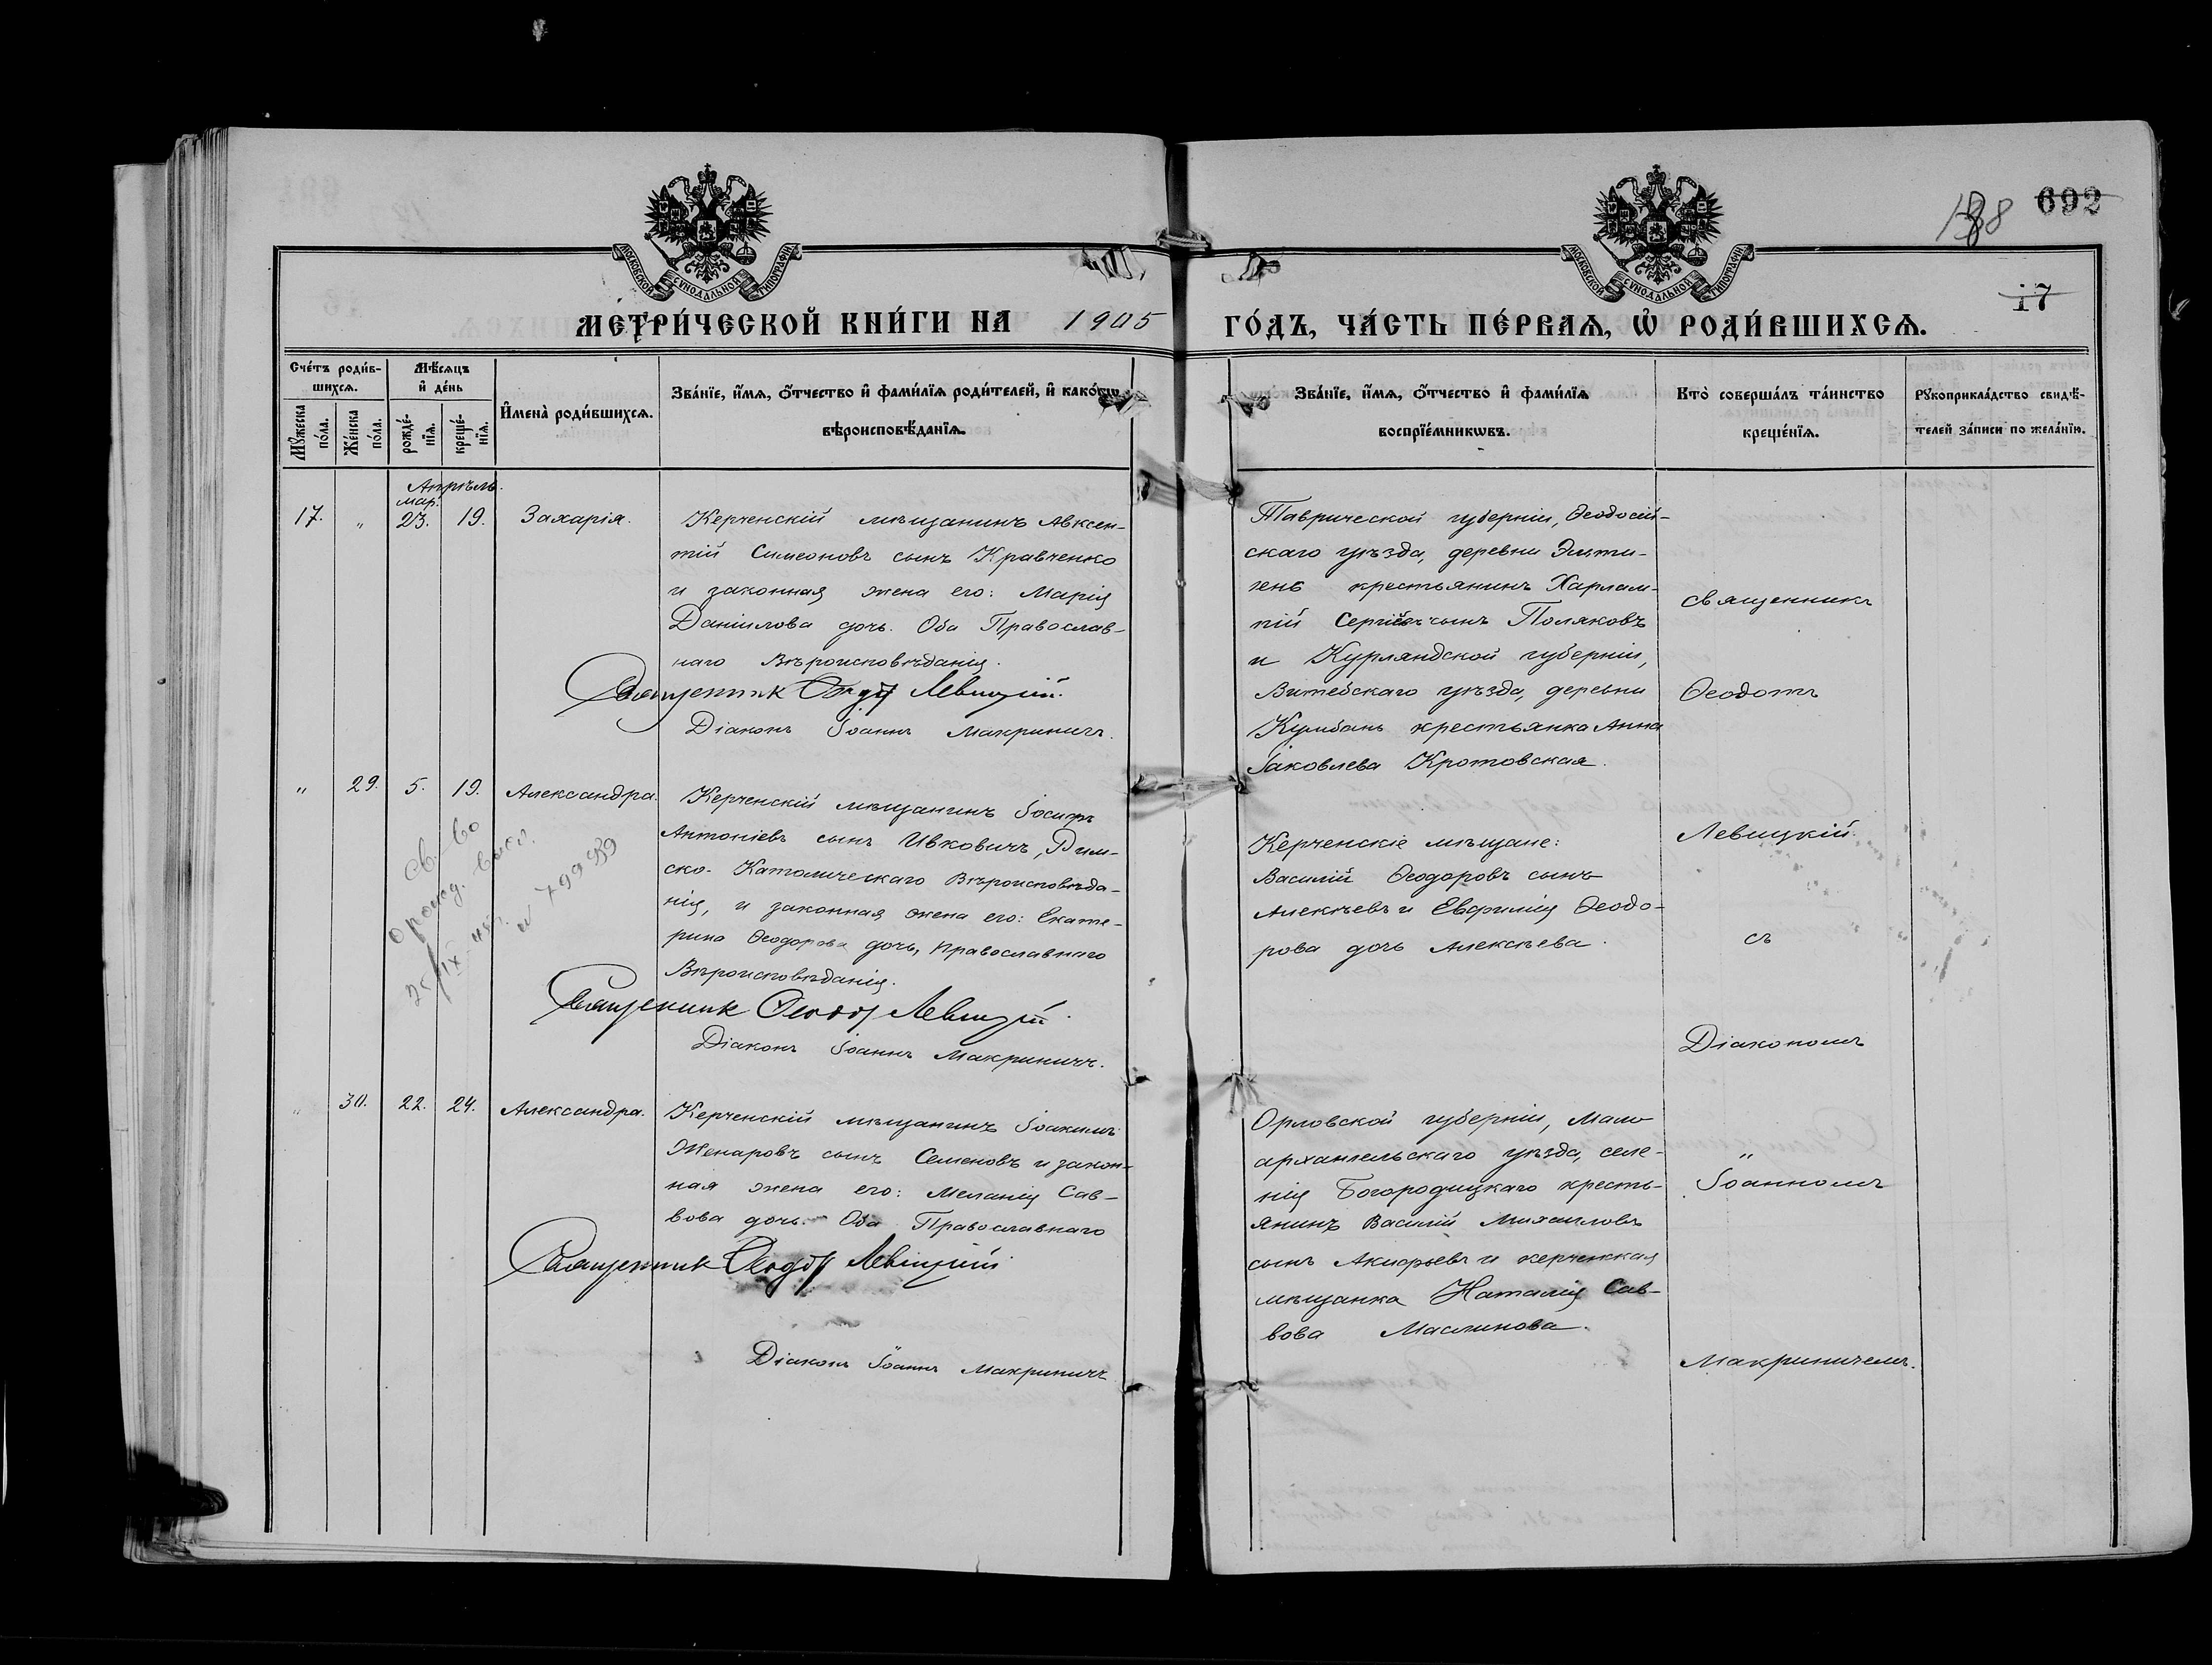 188 692
МОСКОВСКОЙ СѴНОДАЛЬНОЙ ТИПОГРАФІИ
МОСКОВСКОЙ СѴНОДАЛЬНОЙ ТИПОГРАФІИ
17
МЕТРИ́ЧЕСКОЙ КНИ́ГИ НА 1905 ГО́ДЪ, ЧА́СТЬ ПЕ́РВАѦ, Ѽ РОДИ́ВШИХСѦ.
Сче́тъ роди́в-
шихсѧ.
Мꙋ́жеска по́ла.
Же́нска по́ла.
Мѣ́сяцъ
и҆ де́нь
рожде́-
нїѧ.
креще́-
нїѧ.
И҆мена̀ роди́вшихсѧ.
Зва́нїе, и҆́мѧ, ѻ҆́тчество и҆ фами́лїѧ роди́телей, и҆ како́гѡ
вѣроисповѣ́данїѧ.
Зва́нїе, и҆́мѧ, ѻ҆́тчество и҆ фами́лїѧ
воспрїе́мникѡвъ.
Кто̀ соверша́лъ та́инство
креще́нїѧ.
Рꙋкоприкла́дство свидѣ́-
телей за́писи по жела́нїю.
Апрѣль.
мар.
17. „ 23. 19. Захарія.
Керченскій мѣщанинъ Авксен-
тій Симеоновъ сынъ Кравченко
и законная жена его: Марія
Даніилова дочь. Оба Православ-
наго Вѣроисповѣданія.
Священник Феодот Левицкій.
Діаконъ Іоаннъ Макриничъ.
Таврической губерніи, Ѳеодосій-
скаго уѣзда, деревни Эльти-
генъ крестьянинъ Харлам-
пій Сергіевъ сынъ Поляковъ
и Курляндской губерніи,
Витебскаго уѣзда, деревни
Кумбань крестьянка Анна
Іаковлева Кротовская.
Священникъ
Ѳеодотъ
Левицкій
съ
Діакономъ
„
Іоанномъ
Макриничемъ.
„ 29. 5. 19. Александра.
Керченскій мѣщанинъ Іосифъ
Антоніевъ сынъ Ивковичъ, Рим-
ско-Католическаго Вѣроисповѣда-
нія, и законная жена его: Екате-
рина Ѳеодорова дочь, Православнаго
Вѣроисповѣданія.
Священник Феодот Левицкій.
Діаконъ Іоаннъ Макриничъ.
Св-во
о рожд. высл.
25/IX 45 г.
№ 79939
Керченскіе мѣщане:
Василій Ѳеодоровъ сынъ
Алексѣевъ и Евфимія Ѳеодо-
рова дочь Алексѣева.
„ 30. 22. 24. Александра.
Керченскій мѣщанинъ Іоакимъ
Женаровъ сынъ Семеновъ и закон-
ная жена его: Меланія Сав-
вова дочь. Оба Православнаго
Священник Феодот Левицкій
Діаконъ Іоаннъ Макриничъ
Орловской губерніи, Мало
архангельскаго уѣзда, селе-
нія Богородицкаго кресть-
янинъ Василій Михаиловъ
сынъ Акифьевъ и керченская
мѣщанка Наталія Сав-
вова Маслинова.